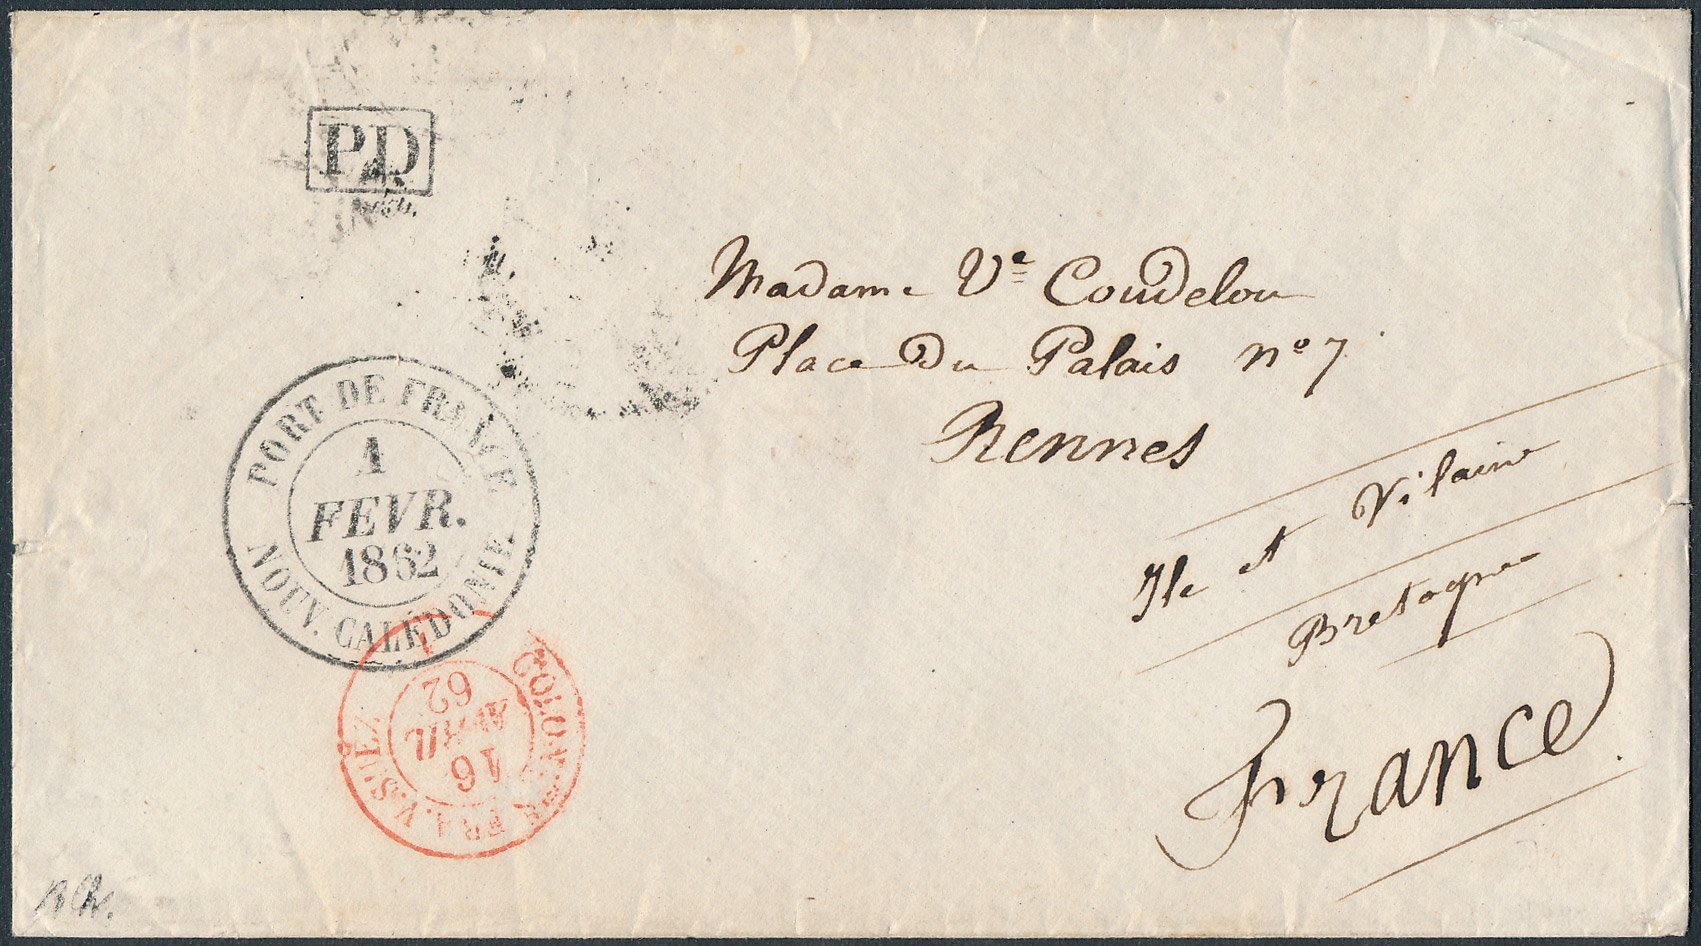 PD
Madame Ve Coudelou
Place Du Palais no 7
Rennes
Ile et Vilaine
Bretagne
France
PORT DE FRANCE
1
FEVR.
1862
NOUV. CALÉDONIE
COLON. FRA. V. SUEZ
16
AVRIL
62